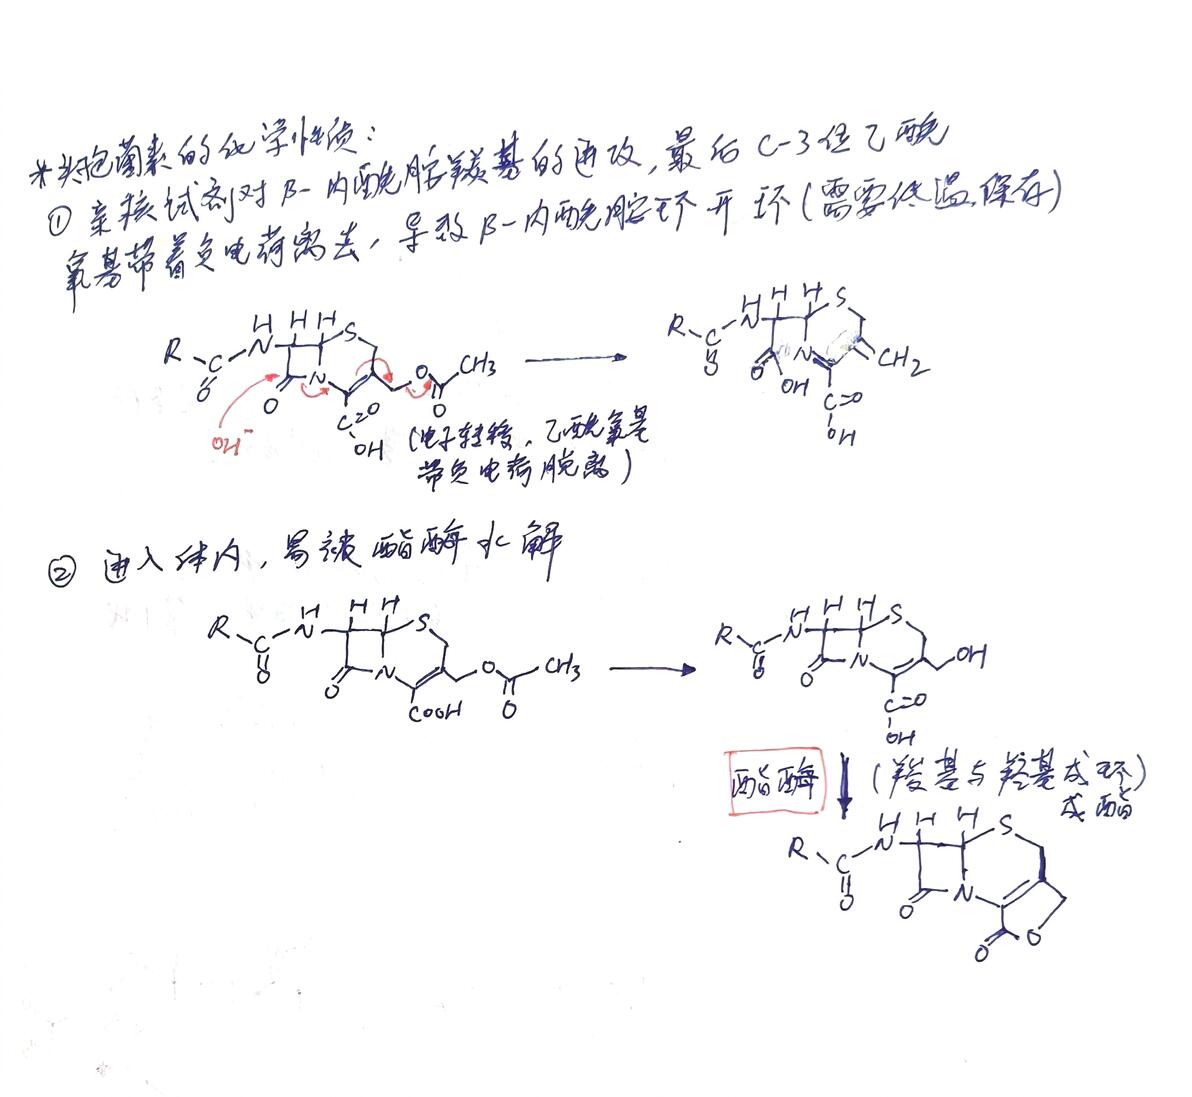 *头孢菌素的化学性质:
① 亲核试剂对β-内酰胺羰基的进攻,最后C-3位乙酰
氧基带着负电荷离去,导致β-内酰胺环开环(需要低温保存)
R C O N H H H S N O O C O CH3
OH⁻
C=O
OH
(电子转移,乙酰氧基
带负电荷脱离)
R C O N H H H S N O OH CH2
C=O
OH
② 进入体内,易被酯酶水解
R C O N H H H S N O O O CH3
COOH
R C O N H H H S N O OH
C=O
OH
酯酶 (羧基与羟基成环)
成酯
R C O N H H H S N O O O